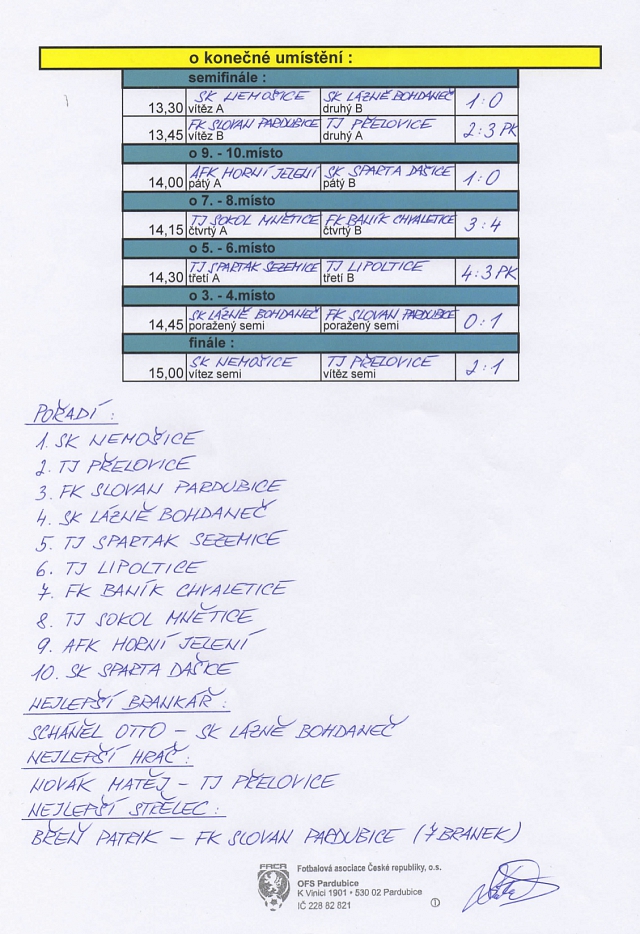 o konečné umístění :
semifinále :
13,30 SK NEMOŠICE SK LÁZNĚ BOHDANEČ 1:0
vítěz A druhý B
13,45 FK SLOVAN PARDUBICE TJ PŘELOVICE 2:3 PK
vítěz B druhý A
o 9. - 10.místo
14,00 AFK HORNÍ JELENÍ SK SPARTA DAŠICE 1:0
pátý A pátý B
o 7. - 8.místo
14,15 TJ SOKOL MNĚTICE FK BANÍK CHVALETICE 3:4
čtvrtý A čtvrtý B
o 5. - 6.místo
14,30 TJ SPARTAK SEZEMICE TJ LIPOLTICE 4:3 PK
třetí A třetí B
o 3. - 4.místo
14,45 SK LÁZNĚ BOHDANEČ FK SLOVAN PARDUBICE 0:1
poražený semi poražený semi
finále :
15,00 SK NEMOŠICE TJ PŘELOVICE 2:1
vítez semi vítěz semi
POŘADÍ :
1. SK NEMOŠICE
2. TJ PŘELOVICE
3. FK SLOVAN PARDUBICE
4. SK LÁZNĚ BOHDANEČ
5. TJ SPARTAK SEZEMICE
6. TJ LIPOLTICE
7. FK BANÍK CHVALETICE
8. TJ SOKOL MNĚTICE
9. AFK HORNÍ JELENÍ
10. SK SPARTA DAŠICE
NEJLEPŠÍ BRANKÁŘ :
SCHÁNĚL OTTO – SK LÁZNĚ BOHDANEČ
NEJLEPŠÍ HRÁČ :
NOVÁK MATĚJ – TJ PŘELOVICE
NEJLEPŠÍ STŘELEC :
BŘEŇ PATRIK – FK SLOVAN PARDUBICE (7 BRANEK)
FACR Fotbalová asociace České republiky, o.s.
OFS Pardubice
K Vinici 1901 • 530 02 Pardubice
IČ 228 82 821 ①